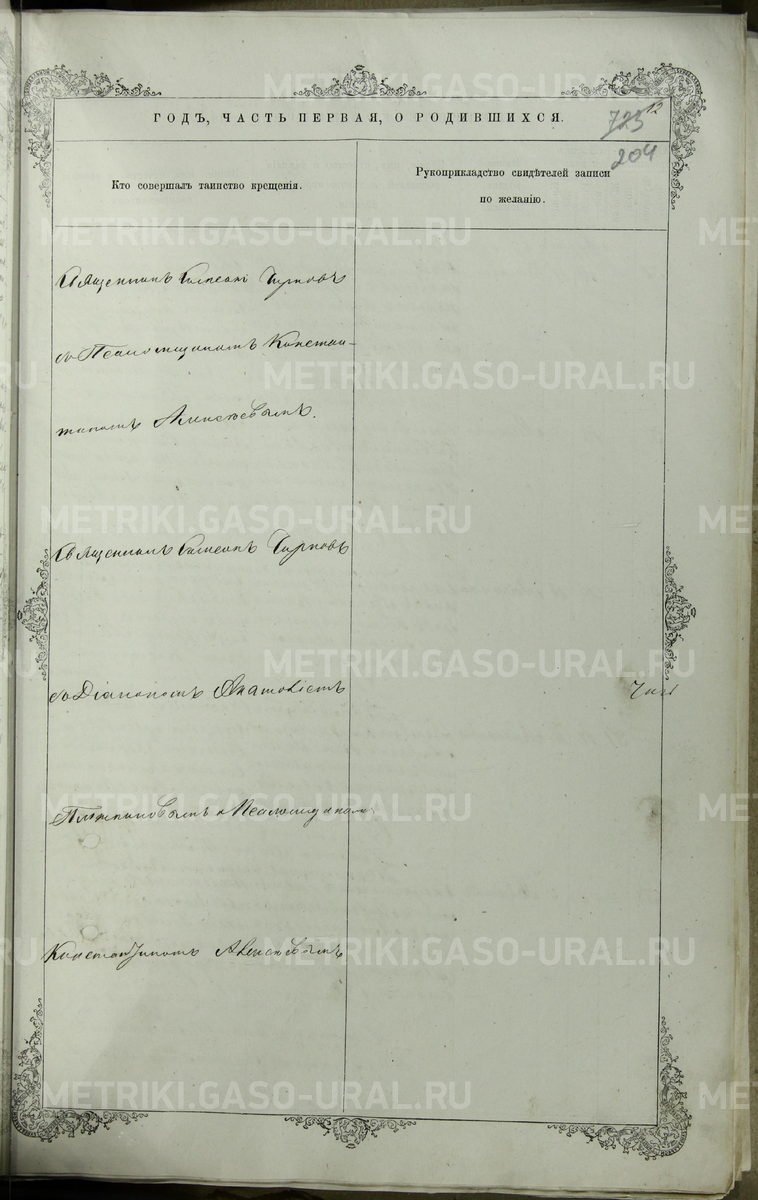 ГОДЪ, ЧАСТЬ ПЕРВАЯ, О РОДИВШИХСЯ.
723 12
204
Кто совершалъ таинство крещенія.
Рукоприкладство свидѣтелей записи
по желанію.
Священникъ
съ Псаломщикомъ Констан-
тиномъ Алексѣевымъ.
Священникъ
съ Діакономъ
и Псаломщикомъ
Константиномъ Алексѣевымъ
METRIKI.GASO-URAL.RU